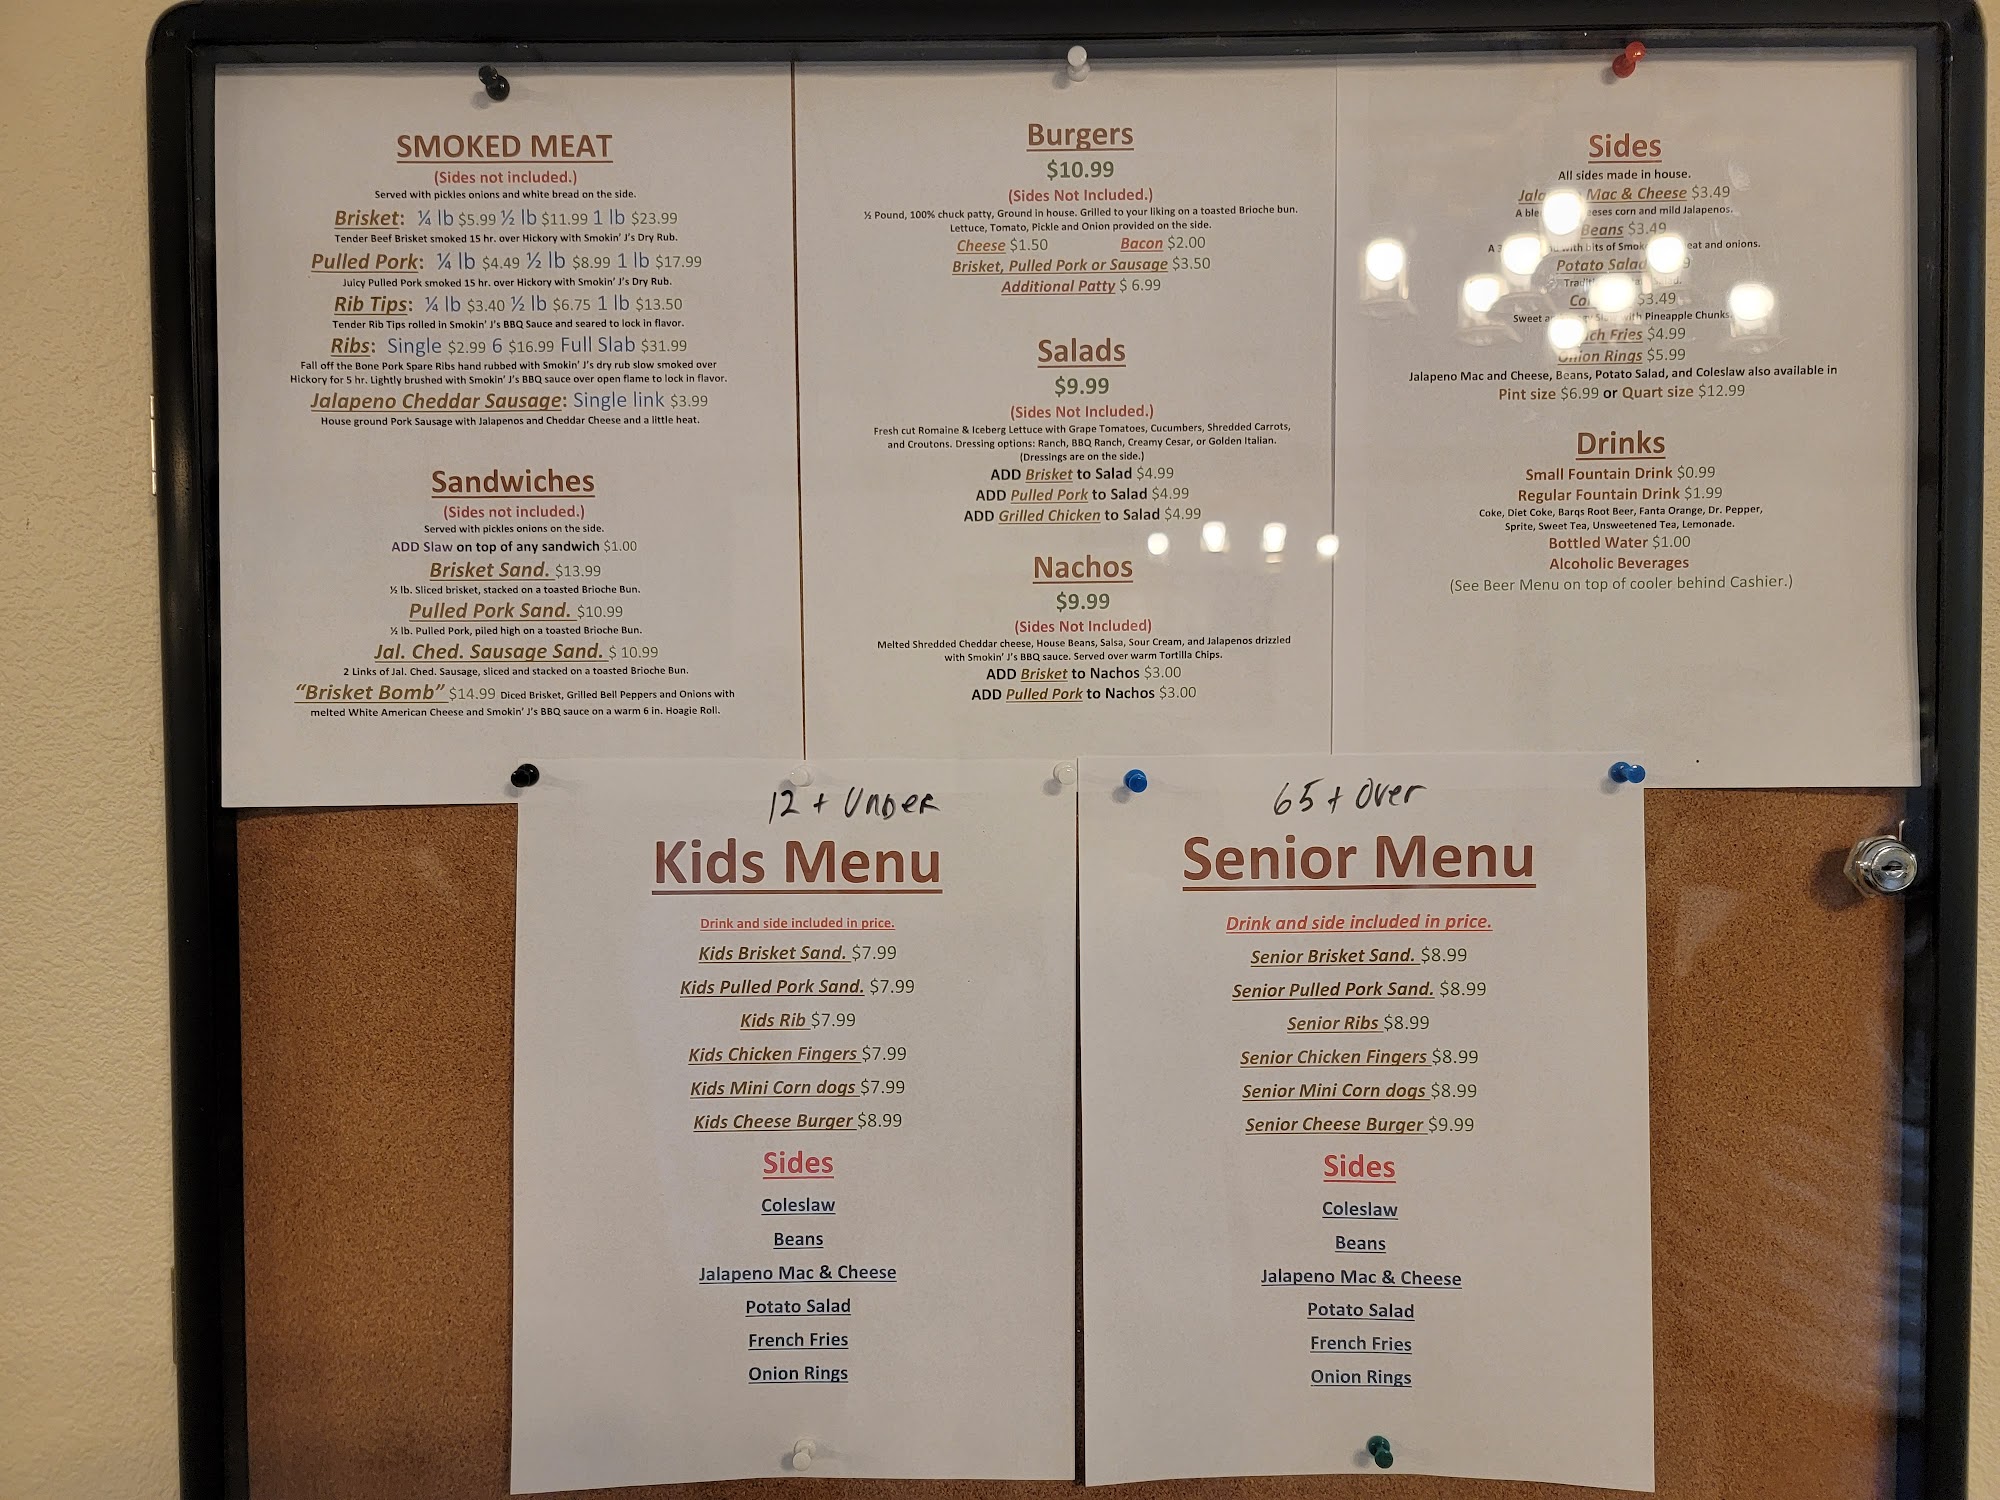 SMOKED MEAT
(Sides not included.)
Served with pickles onions and white bread on the side.
Brisket: ¼ lb $5.99 ½ lb $11.99 1 lb $23.99
Tender Beef Brisket smoked 15 hr. over Hickory with Smokin' J's Dry Rub.
Pulled Pork: ¼ lb $4.49 ½ lb $8.99 1 lb $17.99
Juicy Pulled Pork smoked 15 hr. over Hickory with Smokin' J's Dry Rub.
Rib Tips: ¼ lb $3.40 ½ lb $6.75 1 lb $13.50
Tender Rib Tips rolled in Smokin' J's BBQ Sauce and seared to lock in flavor.
Ribs: Single $2.99 6 $16.99 Full Slab $31.99
Fall off the Bone Pork Spare Ribs hand rubbed with Smokin' J's dry rub slow smoked over
Hickory for 5 hr. Lightly brushed with Smokin' J's BBQ sauce over open flame to lock in flavor.
Jalapeno Cheddar Sausage: Single link $3.99
House ground Pork Sausage with Jalapenos and Cheddar Cheese and a little heat.
Sandwiches
(Sides not included.)
Served with pickles onions on the side.
ADD Slaw on top of any sandwich $1.00
Brisket Sand. $13.99
½ lb. Sliced brisket, stacked on a toasted Brioche Bun.
Pulled Pork Sand. $10.99
½ lb. Pulled Pork, piled high on a toasted Brioche Bun.
Jal. Ched. Sausage Sand. $ 10.99
2 Links of Jal. Ched. Sausage, sliced and stacked on a toasted Brioche Bun.
"Brisket Bomb" $14.99 Diced Brisket, Grilled Bell Peppers and Onions with
melted White American Cheese and Smokin' J's BBQ sauce on a warm 6 in. Hoagie Roll.
Burgers
$10.99
(Sides Not Included.)
½ Pound, 100% chuck patty, Ground in house. Grilled to your liking on a toasted Brioche bun.
Lettuce, Tomato, Pickle and Onion provided on the side.
Cheese $1.50 Bacon $2.00
Brisket, Pulled Pork or Sausage $3.50
Additional Patty $ 6.99
Salads
$9.99
(Sides Not Included.)
Fresh cut Romaine & Iceberg Lettuce with Grape Tomatoes, Cucumbers, Shredded Carrots,
and Croutons. Dressing options: Ranch, BBQ Ranch, Creamy Cesar, or Golden Italian.
(Dressings are on the side.)
ADD Brisket to Salad $4.99
ADD Pulled Pork to Salad $4.99
ADD Grilled Chicken to Salad $4.99
Nachos
$9.99
(Sides Not Included)
Melted Shredded Cheddar cheese, House Beans, Salsa, Sour Cream, and Jalapenos drizzled
with Smokin' J's BBQ sauce. Served over warm Tortilla Chips.
ADD Brisket to Nachos $3.00
ADD Pulled Pork to Nachos $3.00
Sides
All sides made in house.
Mac & Cheese $3.49
corn and mild Jalapenos.
Beans $3.49
with bits of and onions.
Potato Salad
$3.49
Sweet with Pineapple Chunks.
Fries $4.99
Onion Rings $5.99
Jalapeno Mac and Cheese, Beans, Potato Salad, and Coleslaw also available in
Pint size $6.99 or Quart size $12.99
Drinks
Small Fountain Drink $0.99
Regular Fountain Drink $1.99
Coke, Diet Coke, Barqs Root Beer, Fanta Orange, Dr. Pepper,
Sprite, Sweet Tea, Unsweetened Tea, Lemonade.
Bottled Water $1.00
Alcoholic Beverages
(See Beer Menu on top of cooler behind Cashier.)
12 + Under
Kids Menu
Drink and side included in price.
Kids Brisket Sand. $7.99
Kids Pulled Pork Sand. $7.99
Kids Rib $7.99
Kids Chicken Fingers $7.99
Kids Mini Corn dogs $7.99
Kids Cheese Burger $8.99
Sides
Coleslaw
Beans
Jalapeno Mac & Cheese
Potato Salad
French Fries
Onion Rings
65 + Over
Senior Menu
Drink and side included in price.
Senior Brisket Sand. $8.99
Senior Pulled Pork Sand. $8.99
Senior Ribs $8.99
Senior Chicken Fingers $8.99
Senior Mini Corn dogs $8.99
Senior Cheese Burger $9.99
Sides
Coleslaw
Beans
Jalapeno Mac & Cheese
Potato Salad
French Fries
Onion Rings